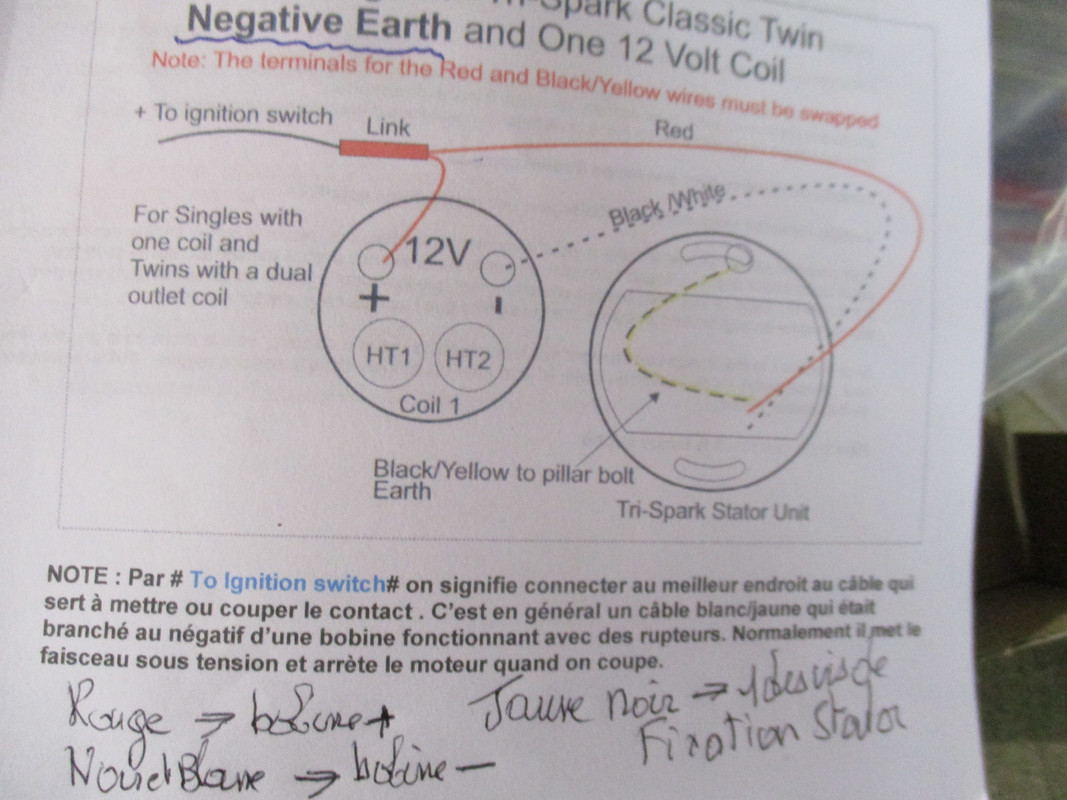 Tri-Spark Classic Twin
Negative Earth and One 12 Volt Coil
Note: The terminals for the Red and Black/Yellow wires must be swapped
+ To ignition switch
Link
Red
Black /White
For Singles with
one coil and
Twins with a dual
outlet coil
12V
+
-
HT1
HT2
Coil 1
Black/Yellow to pillar bolt
Earth
Tri-Spark Stator Unit
NOTE : Par # To Ignition switch# on signifie connecter au meilleur endroit au câble qui
sert à mettre ou couper le contact . C'est en général un câble blanc/jaune qui était
branché au négatif d'une bobine fonctionnant avec des rupteurs. Normalement il met le
faisceau sous tension et arrète le moteur quand on coupe.
Rouge ⇒ bobine +
Noir et Blanc ⇒ bobine -
Jaune noir ⇒ 1 des vis de
Fixation Stator